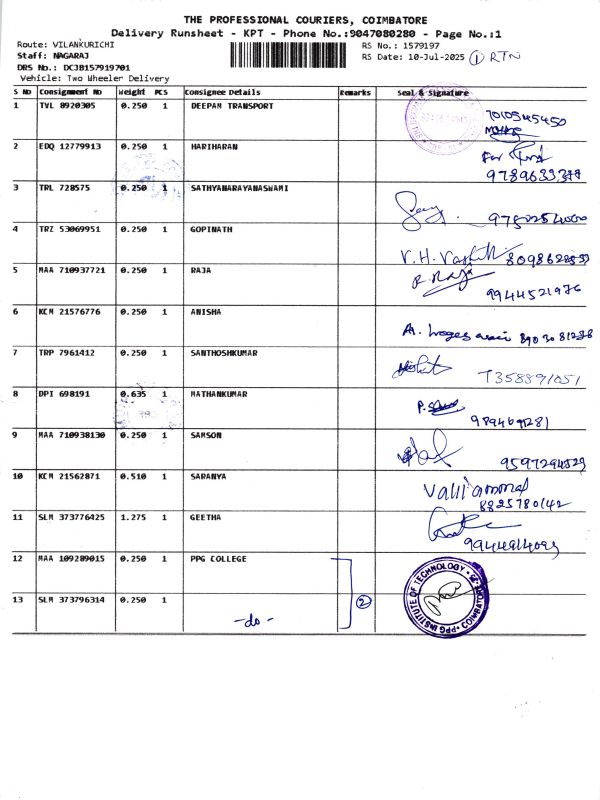 THE PROFESSIONAL COURIERS, COIMBATORE
Delivery Runsheet - KPT - Phone No.:9047080280 - Page No.:1
Route: VILANKURICHI
RS No.: 1579197
Staff: NAGARAJ
RS Date: 10-Jul-2025 1 RTN
DRS No.: DCJB157919701
Vehicle: Two Wheeler Delivery
S NO Consignment NO Weight PCS Consignee Details Remarks Seal & Signature
1 TVL 8920305 0.250 1 DEEPAM TRANSPORT 7010545450
2 EDQ 12779913 0.250 1 HARIHARAN For
3 TRL 728575 0.250 1 SATHYANARAYANASWAMI
4 TRZ 53069951 0.250 1 GOPINATH V.H.
5 MAA 710937721 0.250 1 RAJA R. Raja
9944521976
6 KCM 21576776 0.250 1 ANISHA
7 TRP 7961412 0.250 1 SANTHOSHKUMAR 7358891051
8 DPI 698191 0.635 1 MATHANKUMAR
9 MAA 710938130 0.250 1 SAMSON
10 KCM 21562871 0.510 1 SARANYA Valliammal
8825780142
11 SLM 373776425 1.275 1 GEETHA
12 MAA 109289015 0.250 1 PPG COLLEGE
PPG INSTITUTE OF TECHNOLOGY
13 SLM 373796314 0.250 1 -do- 2